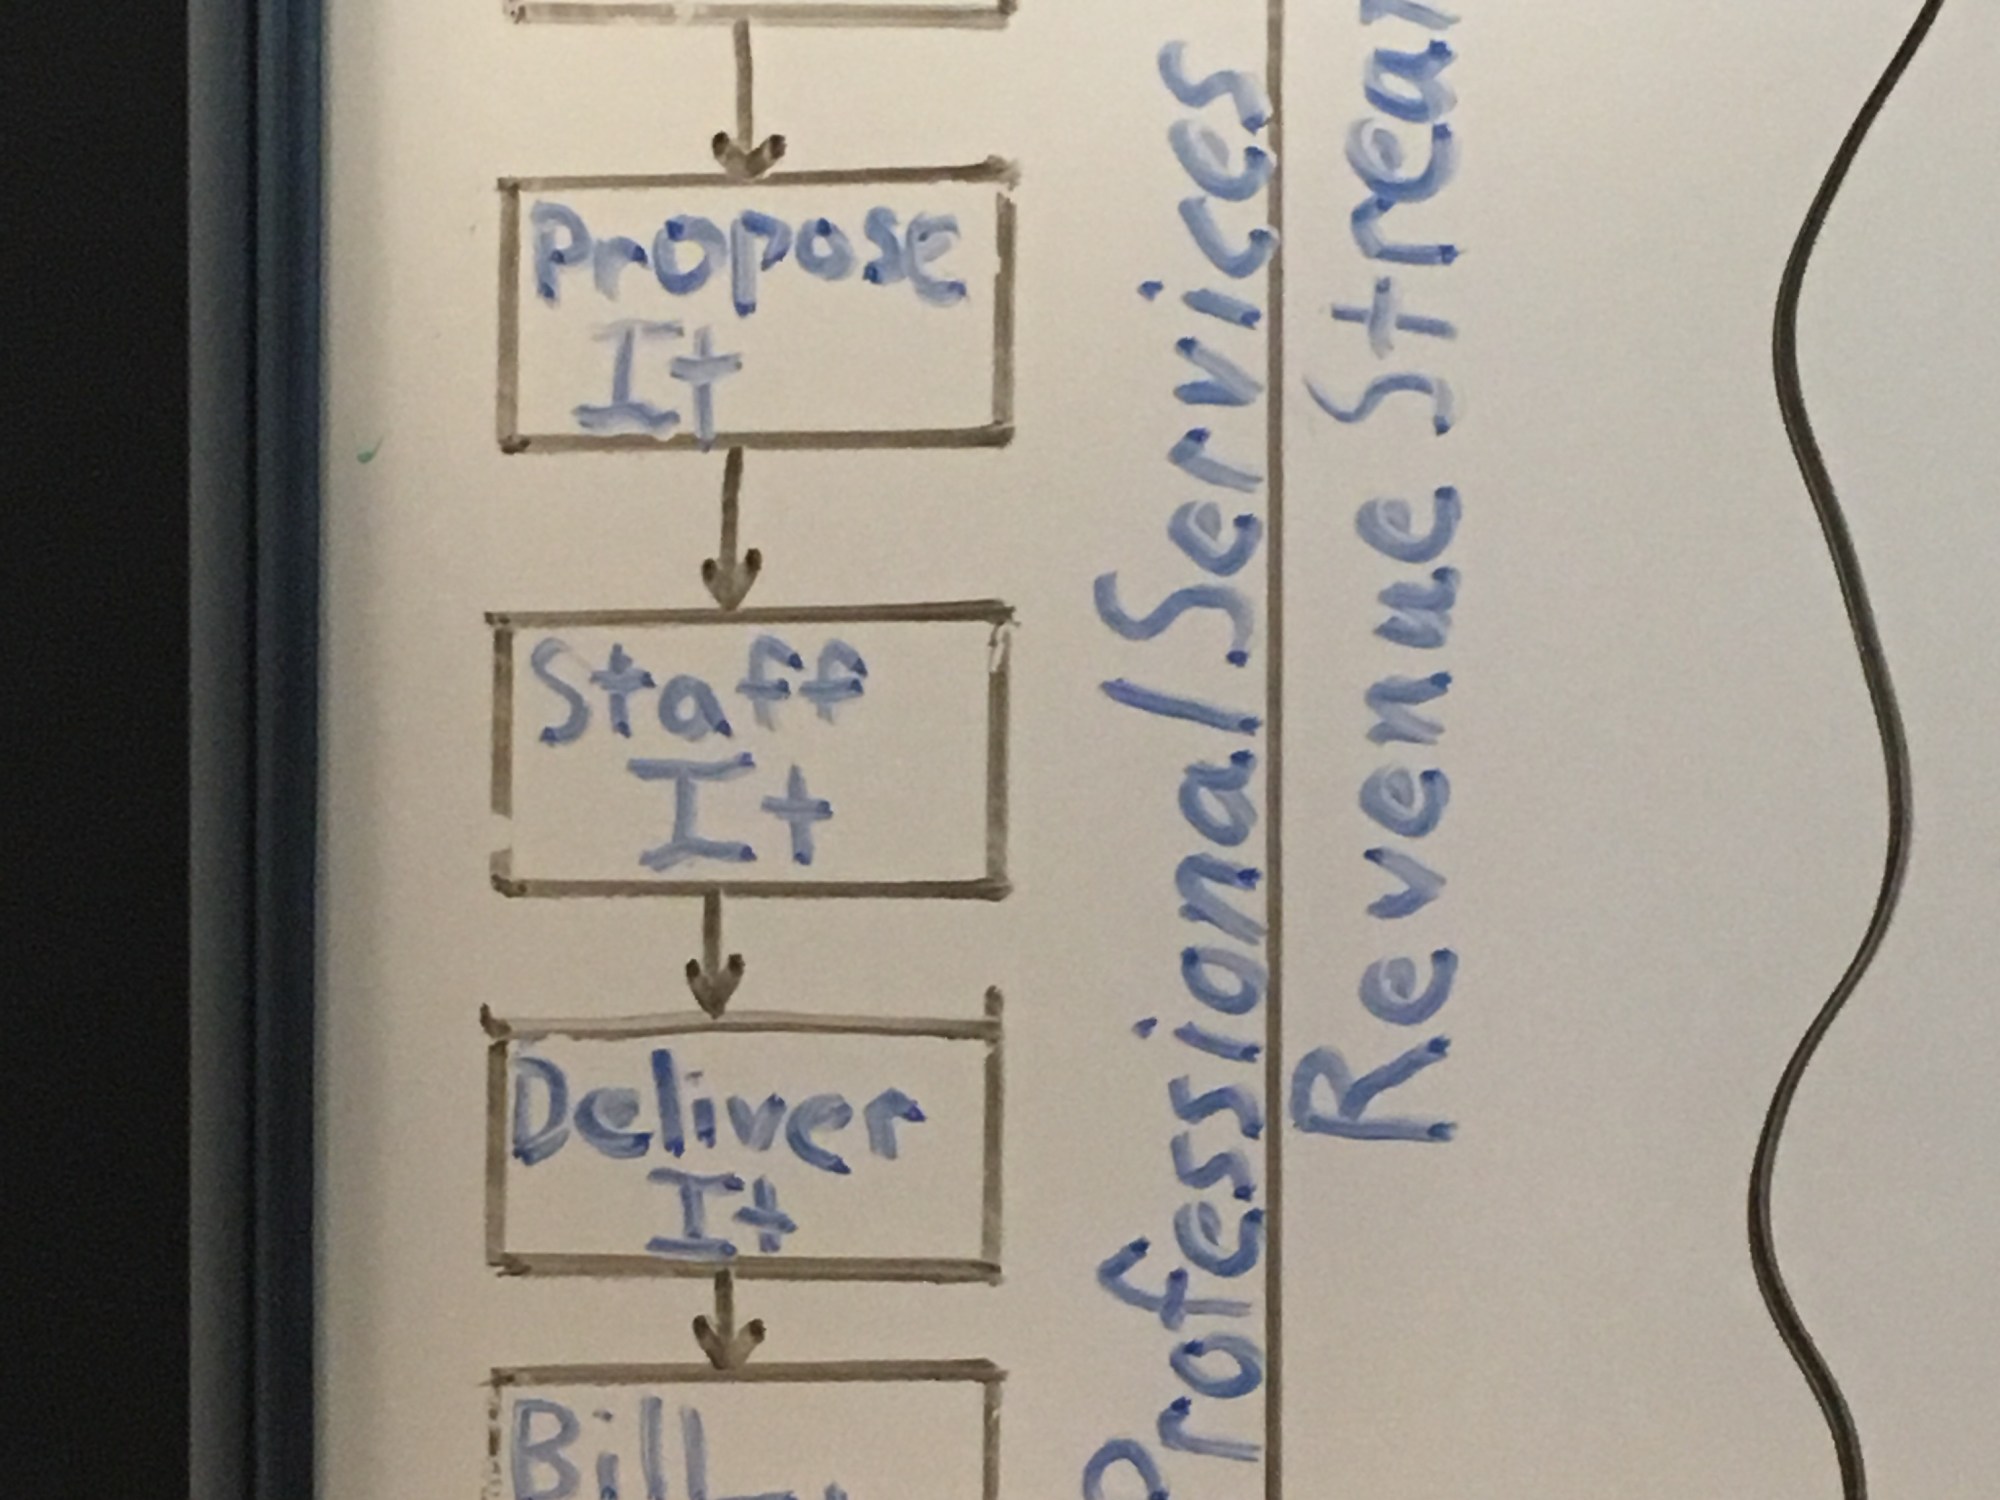 Propose
It
Staff
It
Deliver
It
Bill
Professional Services
Revenue